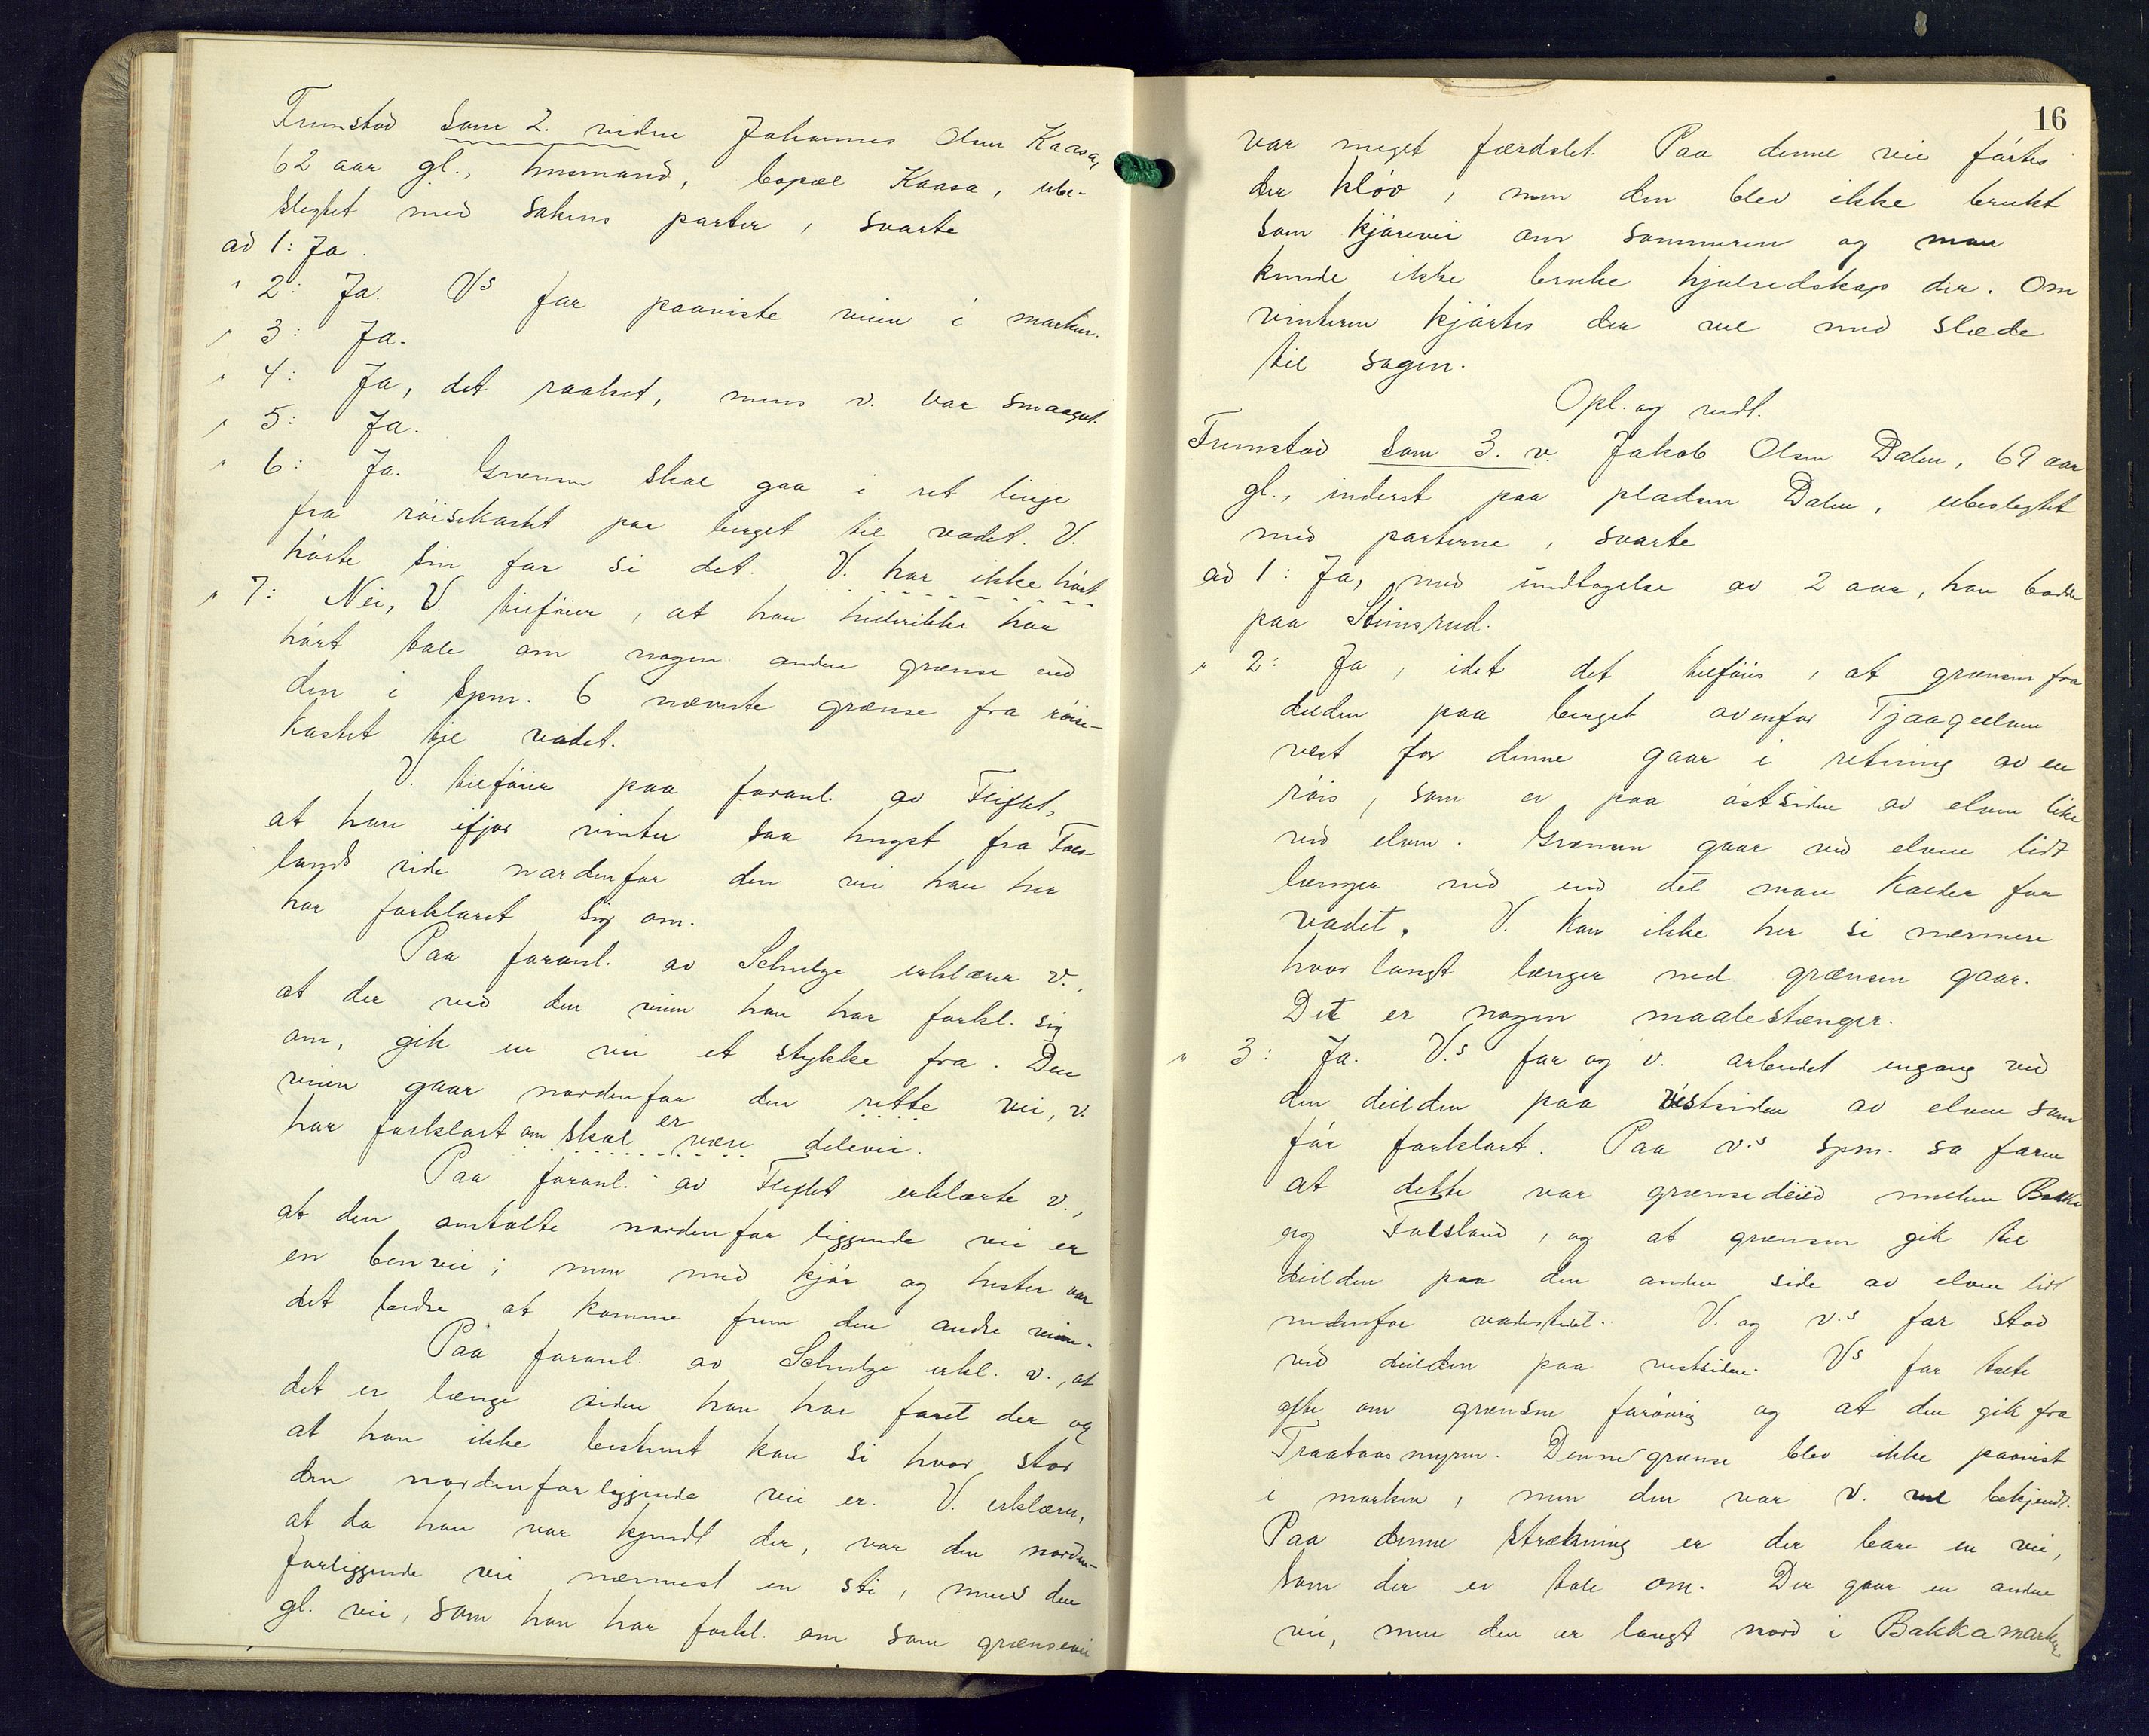 Fremstod som 2. vidne Johannes Olsen Kaasa,
62 aar gl., husmand, bopæl Kaasa, ube-
slegtet med sakens parter, svarte
ad 1: Ja.
" 2: Ja. Vs far paaviste veien i marken.
" 3: Ja.
" 4: Ja, det saalset, mens v. var smaagut.
" 5: Ja.
" 6: Ja. Grænsen skal gaa i ret linje
fra röisekastet paa berget til vadet. V.
hörte sin far si det. V. har ikke hört
" 7: Nei, V. tilföier, at han heller ikke har
hört tale om nogen anden grænse end
den i spm. 6 nævnte grænse fra röise-
kastet til vadet.
V. tilföier paa foranl. av Fleiftet,
at han ifjor vinter saa hugst fra Fals-
lands side nordenfor den vei han her
har forklaret sig om.
Paa foranl. av Schulze erklærer v.,
at der ved den veien han har forkl. sig
om, gik en vei et stykke fra. Den
veien gaar nordenfor den rette vei, v.
har forklart om skal er være delevei.
Paa foranl. av Fleiftet erklærte v.,
at den omtalte nordenfor liggende vei er
en benvei; men med kjör og hester var
det bedre at komme frem den andre veien.
Paa foranl. av Schulze erkl. v., at
det er længe siden han har faret der og
at han ikke bestemt kan si hvor stor
den nordenforliggende vei er. V. erklærer,
at da han var kjendt der, var den norden-
forliggende vei nærmest en sti, mens den
gl. vei, som han har forkl. om som grænsevei
16
var meget færdslet. Paa denne vei förtes
der klöv, men den blev ikke brukt
som kjörevei om sommeren og man
kunde ikke bruke hjulredskap der. Om
vinteren kjörtes der vel med slæde
til sagen.
Opl. og vedt.
Fremstod som 3. v. Jakob Olsen Dalen, 69 aar
gl., inderst paa pladsen Dalen, ubeslegtet
med parterne, svarte
ad 1: Ja, med undtagelse av 2 aar, han bodde
paa Stimsrud.
" 2: Ja, idet det tilföies, at grænsen fra
deilden paa berget ovenfor Tjaageelven
vest for denne gaar i retning av en
röis, som er paa östsiden av elven like
ved elven. Grænsen gaar ved elven lidt
længer ned end det man kalder for
vadet. V. kan ikke her si nærmere
hvor langt længer ned grænsen gaar.
Det er nogen maalestænger.
" 3: Ja. V.s far og v. arbeidet engang ved
den deilden paa vestsiden av elven som
för forklart. Paa v.s spm. sa faren
at dette var grænsedeild mellem Bakka
og Falsland, og at grænsen gik til
deilden paa den anden side av elven lidt
nedenfor vadestedet. V. og v.s far stod
ved deilden paa vestsiden. Vs far talte
ofte om grænsen forövrig og at den gik fra
Traataasmyren. Denne grænse blev ikke paavist
i marken, men den var v. vel bekjendt.
Paa denne strækning er der bare en vei,
som der er tale om. Der gaar en anden
vei, men den er langt nord i Bakkamarken,